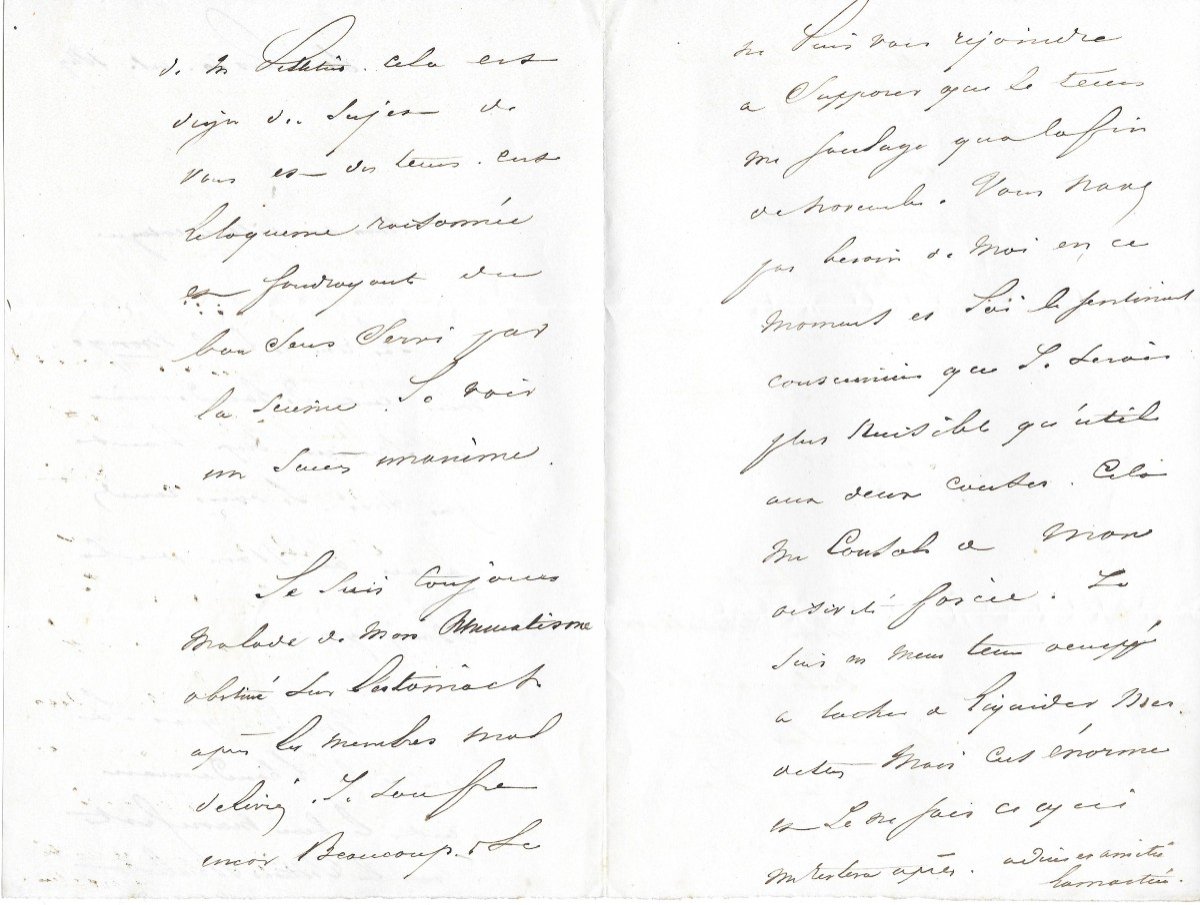 de M cela est
digne du sujet de
vous et des tems. c'est
l'eloquence raisonnée
et foudroyante du
bon sens servi par
la science. Je vois
un succès unanime.
Je suis toujours
malade de mon Rhumatisme
obstiné sur l'estomach
après les membres mal
delivrés. Je souffre
encor Beaucoup. & Je
ne puis vous rejoindre
a supposer que le tems
me soulage qu'a la fin
de novembre. Vous n'avez
pas besoin de Moi en ce
Moment et J'ai le sentiment
que Je serais
plus nuisible qu'utile
aux deux Cela
me Console de Mon
forcée. Je
suis en meme tems occuppé
a tacher de liquider Mes
dettes Mais c'est énorme
et Je ne sais ce qui
me restera après. adieu et amitié
Lamartine.